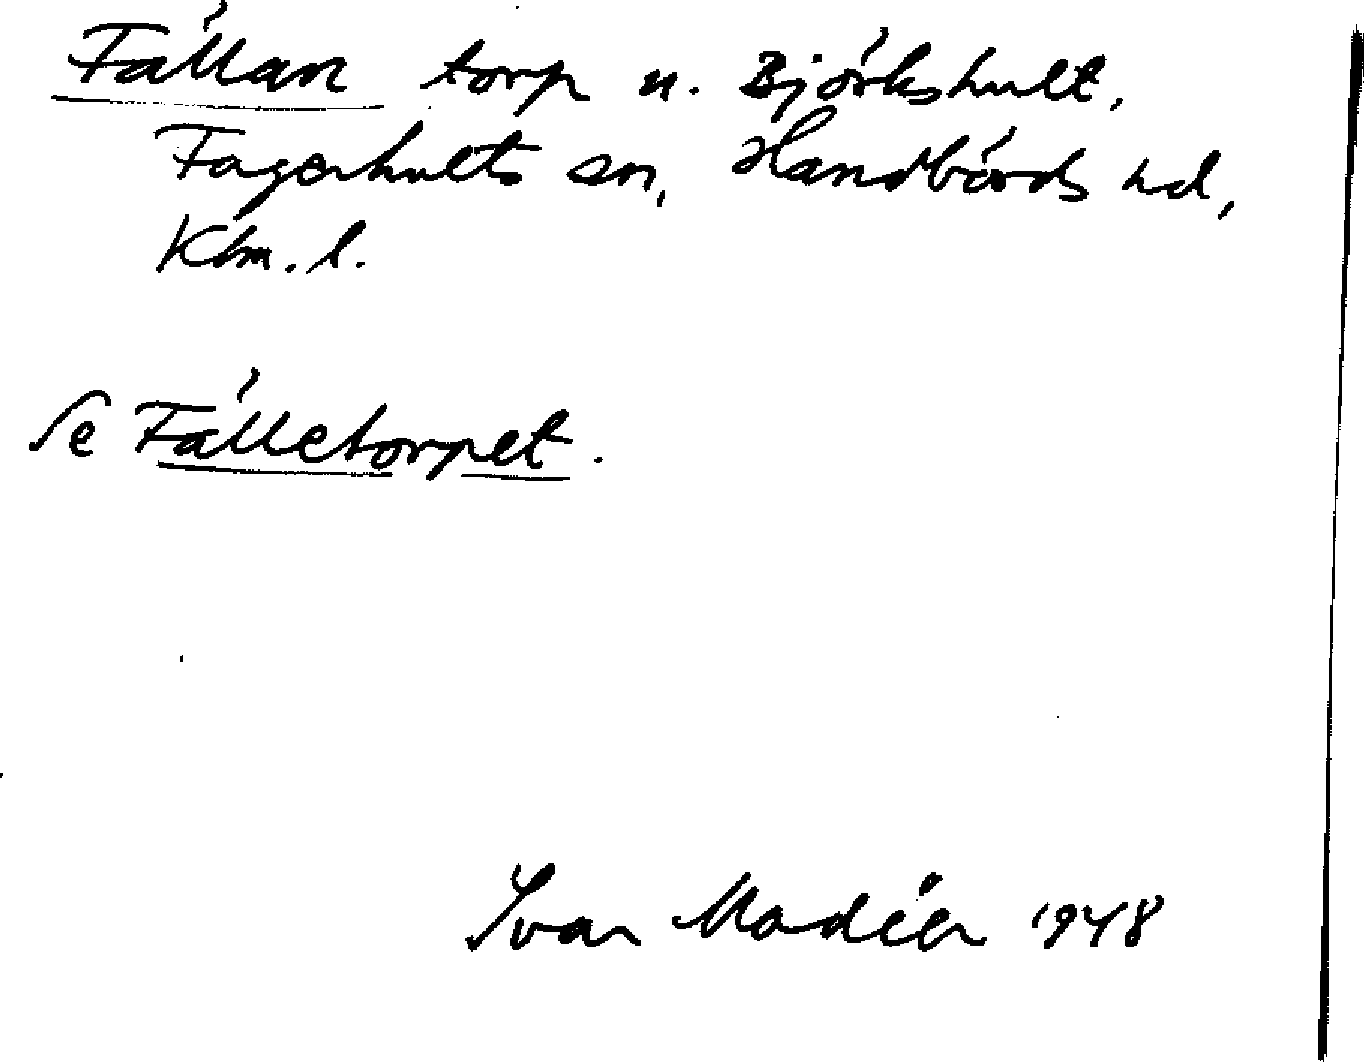 Fällan torp u. Björkshult,
Fagerhults sn, Handbörds hd,
Klm. l.
Se Fälletorpet.
Ivar Modéer 1948